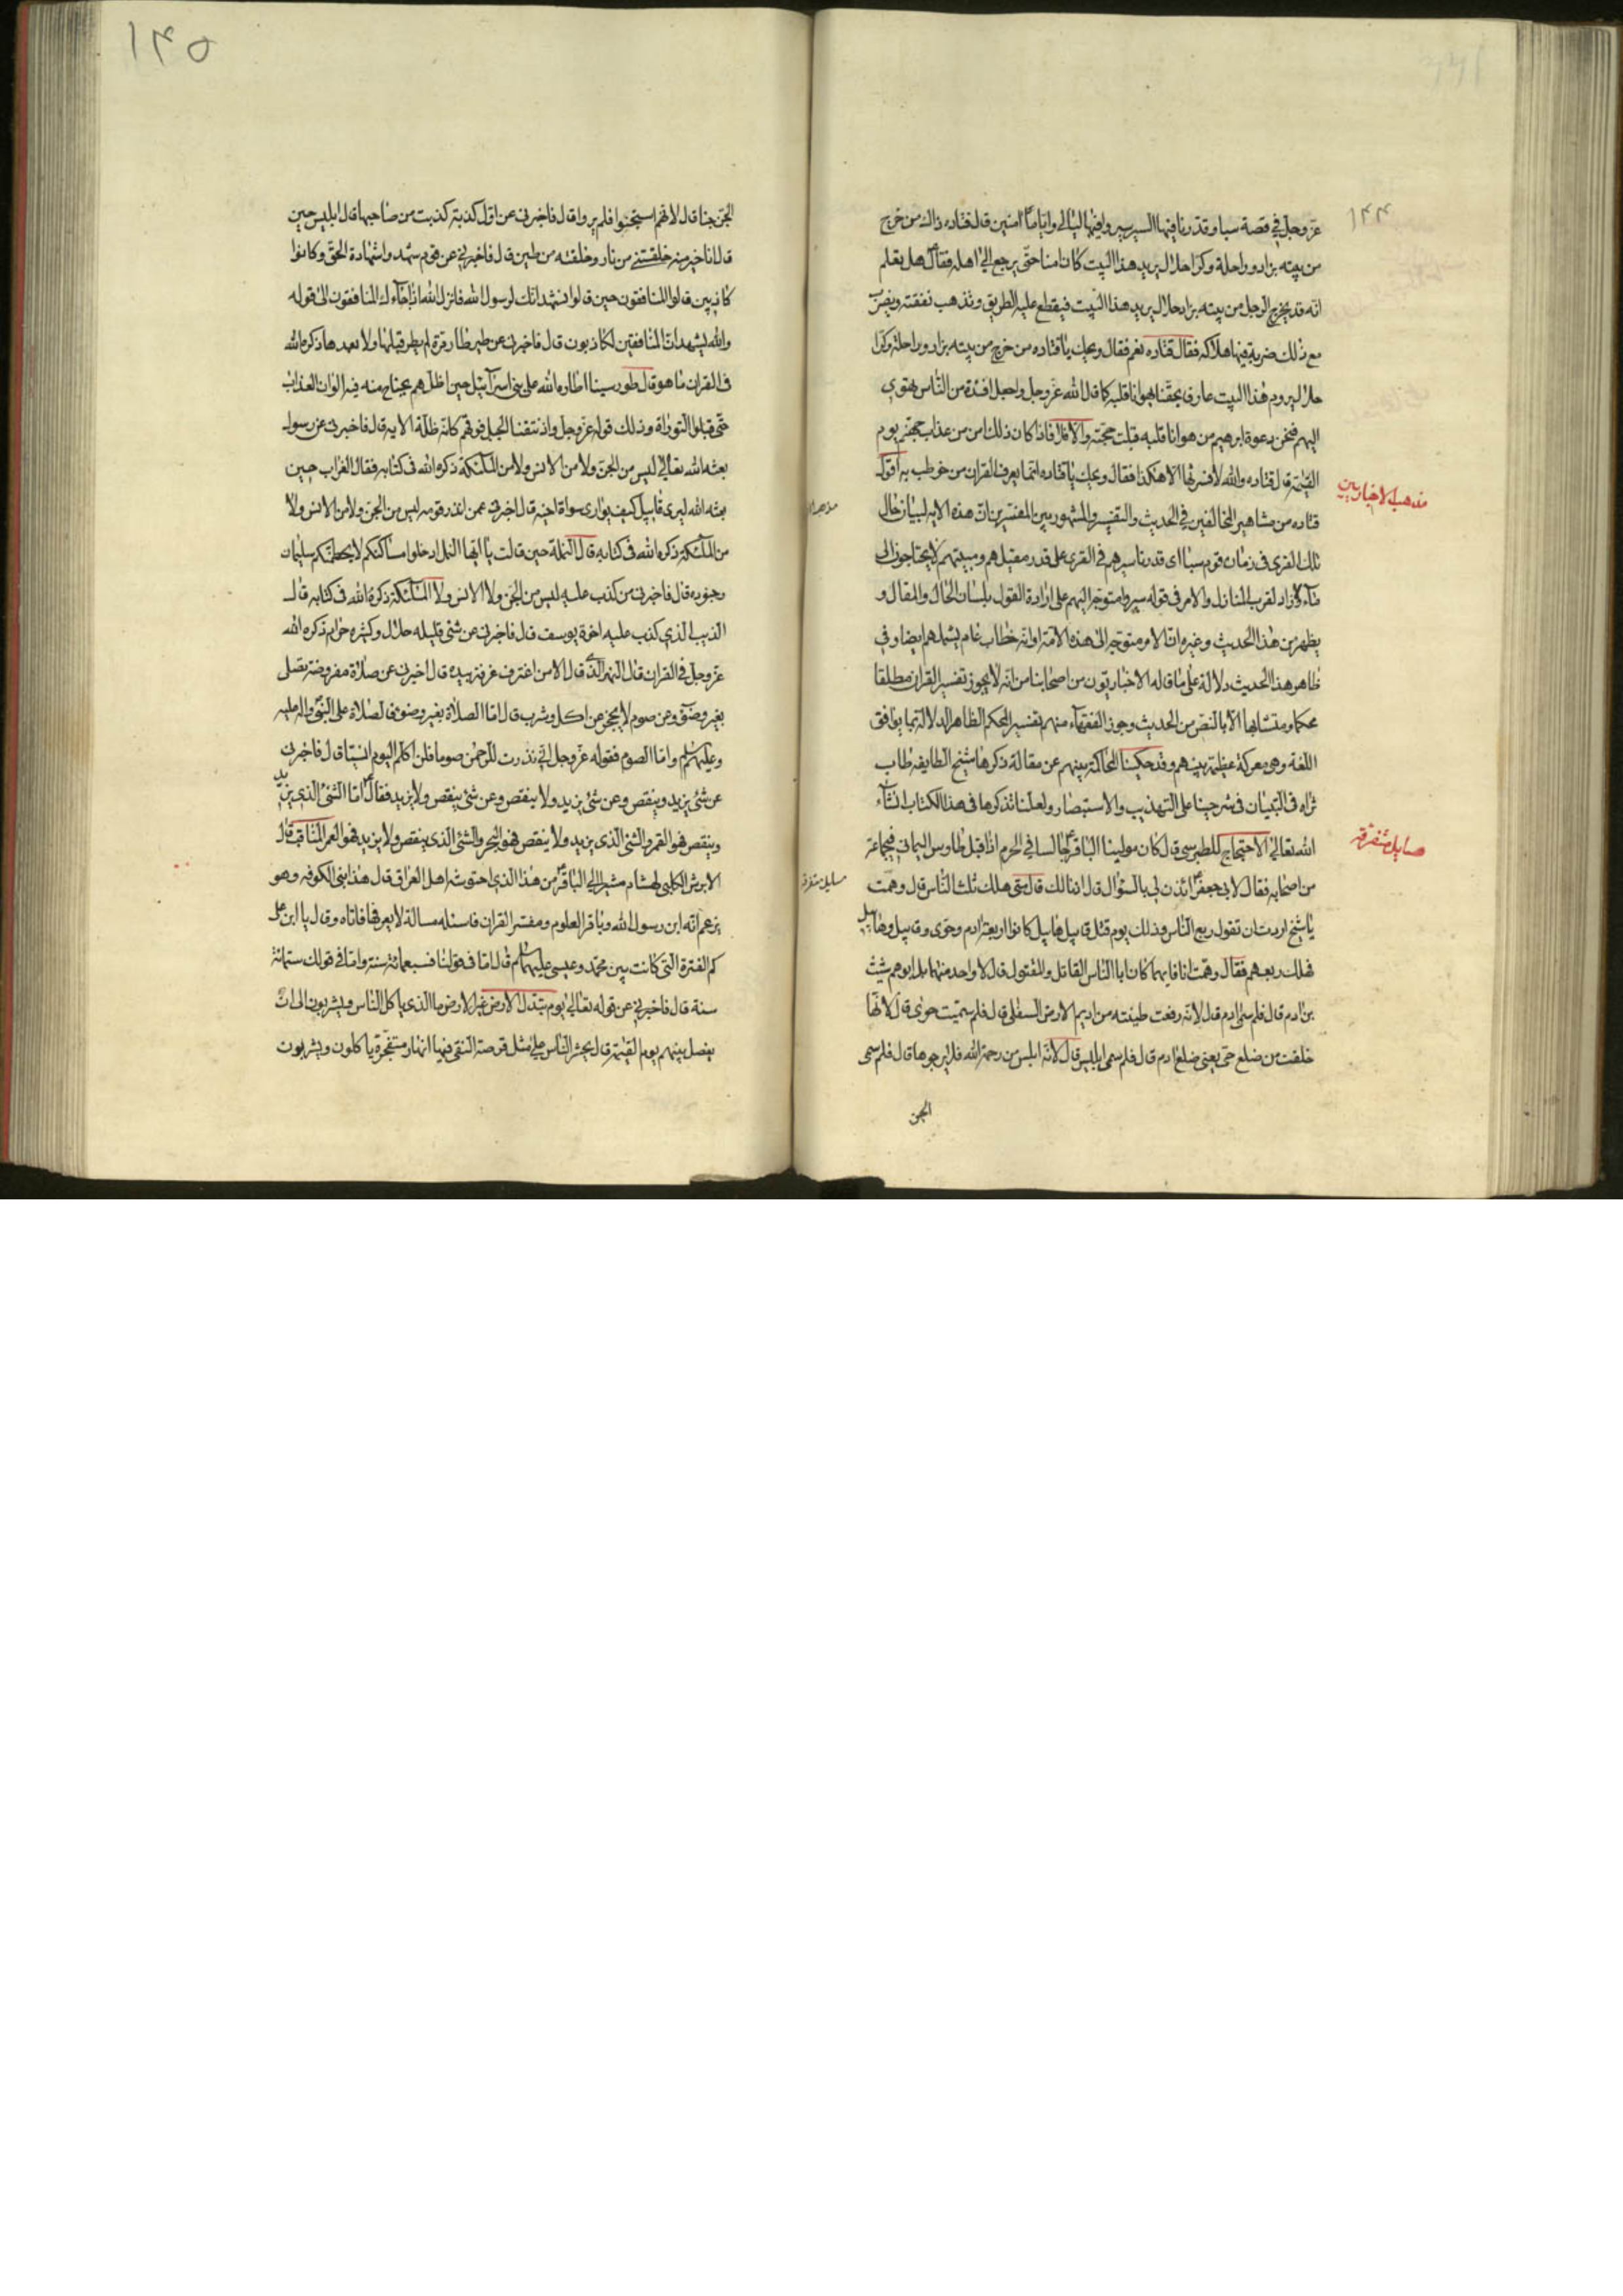 ١٤٤
عزّ وجلّ في قصة سبا وقدّرنا فيها السير سيروا فيها ليالي واياما امنين قال قتاده ذاك من خرج
من بيته بزاد وراحلة وكرا حلال يريد هذا البيت كان امنا حتى يرجع الي اهله فقال هل تعلم
انه قد يخرج الرجل من بيته بزاد حلال يريد هذا البيت فيقطع عليه الطريق وتذهب نفقته ويضرب
مع ذلك ضربة فيها هلاكه فقال قتاده نعم فقال ويحك يا قتاده من خرج من بيته بزاد وراحلة وكرا
حلال يروم هذا البيت عارف بحقنا يهوانا قلبه كما قال الله عز وجل واجعل افئدة من الناس تهوي
اليهم فنحن دعوة ابرهيم من هوانا قلبه قبلت حجته والا فلا فاذا كان ذلك امن من عذاب جهنم يوم
القيمة قال قتاده والله لا فسرتها الا هكذا فقال ويحك يا قتاده انما يعرف القران من خوطب به اقول
مذهب الاخباريين
قتاده من مشاهير المخالفين في الحديث والتفسير والمشهور بين المفسرين ان هذه الايه لبيان حال
تلك القرى في زمان قوم سبا اى قدرنا سيرهم في القرى على قدر مقيلهم ومبيتهم لا يحتاجون الى
ماء ولا زاد لقرب المنازل والامر في قوله سيروا متوجه اليهم على ارادة القول بلسان الحال والمقال و
يظهر من هذا الحديث وغيره ان الامر متوجه الى هذه الامة او انه خطاب عام يشملهم ايضا وفي
ظاهر هذا الحديث دلالة على ما قاله الاخباريون من اصحابنا من انه لا يجوز تفسير القران مطلقا
محكما ومتشابها الا بالنص من الحديث وجوز الفقهاء منهم تفسير المحكم الظاهر الدلالة بما يوافق
اللغة وهي معركة عظيمة بينهم وقد حكينا المحاكمة بينهم عن مقالة ذكرها شيخ الطايفه طاب
ثراه في التبيان في شرحينا على التهذيب والاستبصار ولعلنا نذكرها في هذا الكتاب انشاء
الله تعالي الاحتجاج للطبرسي قال كان مولينا الباقر جالسا في الحرم اذ اقبل طاوس اليماني في جماعة
مسايل متفرقه
من اصحابه فقال لابي جعفر ائذن لي بالسؤال قال اذنا لك قال متى هلك ثلث الناس قال وهمت
يا شيخ اردت ان تقول ربع الناس وذلك يوم قتل قابيل هابيل كانوا اربعة ادم وحوى وقابيل وهابيل
فهلك ربعهم فقال وهمت انا فايهما كان ابا الناس القاتل والمقتول قال لا واحد منهما بل ابوهم شيث
بن ادم قال فلم سمي ادم قال لانه رفعت طينته من اديم الارض السفلي قال فلم سميت حوى قال لانها
خلقت من ضلع حي يعني ضلع ادم قال فلم سمى ابليس قال لانه ابلس من رحمة الله فلا يرجوها قال فلم سمى
الجن
١٤٥
الجن جنا قال لانهم استجنوا فلم يروا قال فاخبرني عن اول كذبة كذبت من صاحبها قال ابليس حين
قال انا خير منه خلقتني من نار وخلقته من طين قال فاخبرني عن قوم شهدوا شهادة الحق وكانوا
كاذبين قال المنافقون حين قالوا نشهد انك لرسول الله فانزل الله اذا جاءك المنافقون الي قوله
والله يشهد ان المنافقين لكاذبون قال فاخبرني عن طير طار مرة لم يطر قبلها ولا بعدها ذكره الله
في القران ما هو قال طور سينا اطاره الله على بني اسرآئيل حين اظلهم بجناح منه فيه الوان العذاب
حتى قبلوا التوراة وذلك قوله عز وجل واذ نتقنا الجبل فوقهم كانه ظلة الايه قال فاخبرني عن رسول
بعثه الله تعالي ليس من الجن ولا من الانس ولا من الملائكة ذكره الله في كتابه فقال الغراب حين
بعثه الله ليرى قابيل كيف يوارى سواة اخيه قال اخبرني عمن انذر قومه ليس من الجن ولا من الانس ولا
من الملائكة ذكره الله في كتابه قال النملة حين قالت يا ايها النمل ادخلوا مساكنكم لا يحطمنكم سليمان
وجنوده قال فاخبرني من كذب عليه ليس من الجن ولا الانس ولا الملائكة ذكره الله في كتابه قال
الذيب الذي كذب عليه اخوة يوسف قال فاخبرني عن شئ قليله حلال وكثيره حرام ذكره الله
عز وجل في القران قال النهر الذي قال الا من اغترف غرفة بيده قال اخبرني عن صلاة مفروضة تصلى
بغير وضوء وعن صوم لا يحجز عن اكل وشرب قال اما الصلاة بغير وضوء فالصلاة على النبي واله عليه
وعليهم السلم واما الصوم فقوله عز وجل اني نذرت للرحمن صوما فلن اكلم اليوم انسيا قال فاخبرني
عن شئ يزيد وينقص وعن شئ يزيد ولا ينقص وعن شئ ينقص ولا يزيد فقال اما الشئ الذي يزيد
وينقص فهو القمر والشئ الذي يزيد ولا ينقص فهو البحر والشئ الذي ينقص ولا يزيد فهو العمر المناقب قال
الابرش الكلبي لهشام مشيرا الي الباقر من هذا الذي احتوشه اهل العراق قال هذا نبي الكوفه وهو
يزعم انه ابن رسول الله وباقر العلوم ومفسر القران فاسئله مسالة لا يعرفها فاتاه وقال يا ابن علي
كم الفترة التي كانت بين محمد وعيسى عليهما السلام قال اما في قولنا فسبعمائة سنة واما في قولك ستمائة
سنة قال فاخبرني عن قوله تعالي يوم تبدل الارض غير الارض ما الذي ياكل الناس ويشربون الى ان
يفصل بينهم يوم القيمة قال يحشر الناس على مثل قرصة النقي فيها انهار متفجرة ياكلون ويشربون